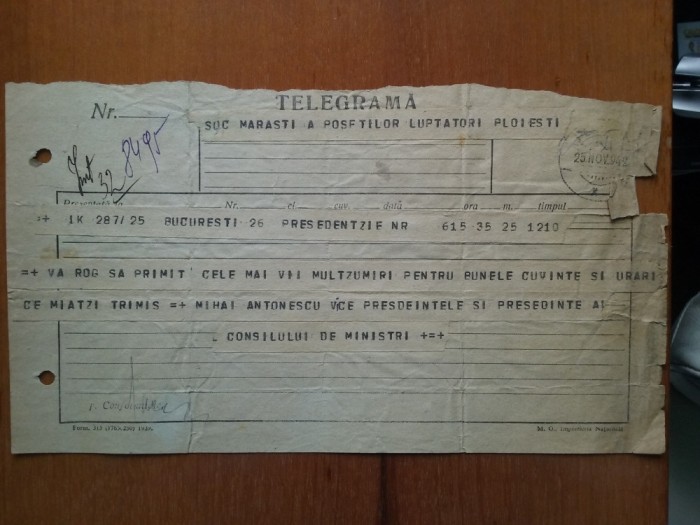 TELEGRAMĂ
Nr.
SUC MARASTI A POSETILOR LUPTATORI PLOIESTI
8495
32
25 NOV.
Nr. el cuv. dată ora m. timpul
=+ IK 287/25 BUCURESTI 26 PRESEDENTZIE NR 615 35 25 1210
=+ VA ROG SA PRIMIT' CELE MAI VII MULTZUMIRI PENTRU BUNELE CUVINTE SI URARI
CE MIATZI TRIMIS =+ MIHAI ANTONESCU VICE PRESDEINTELE SI PRESEDINTE AL
CONSILULUI DE MINISTRI +=+
M. O., Imprimeria Națională